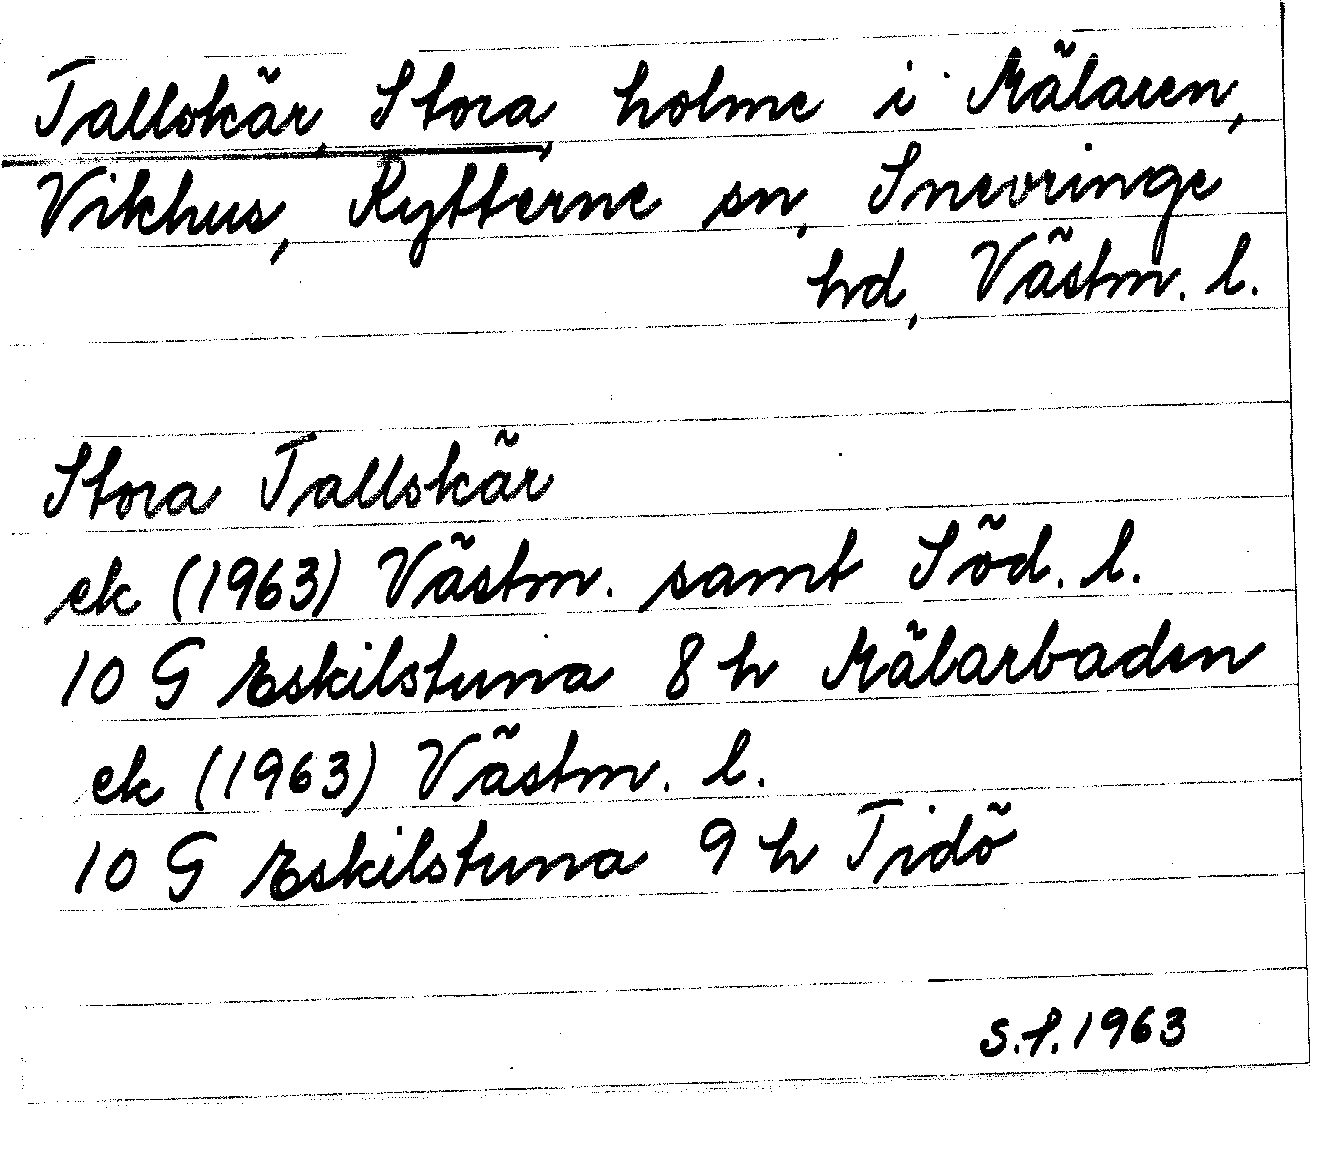 Tallskär, Stora, holme i Mälaren,
Vikhus, Rytterne sn, Snevringe
hd, Västm. l.
Stora Tallskär
ek (1963) Västm. samt Söd. l.
10 G Eskilstuna 8 h Mälarbaden
ek (1963) Västm. l.
10 G Eskilstuna 9 h Tidö
S.f. 1963